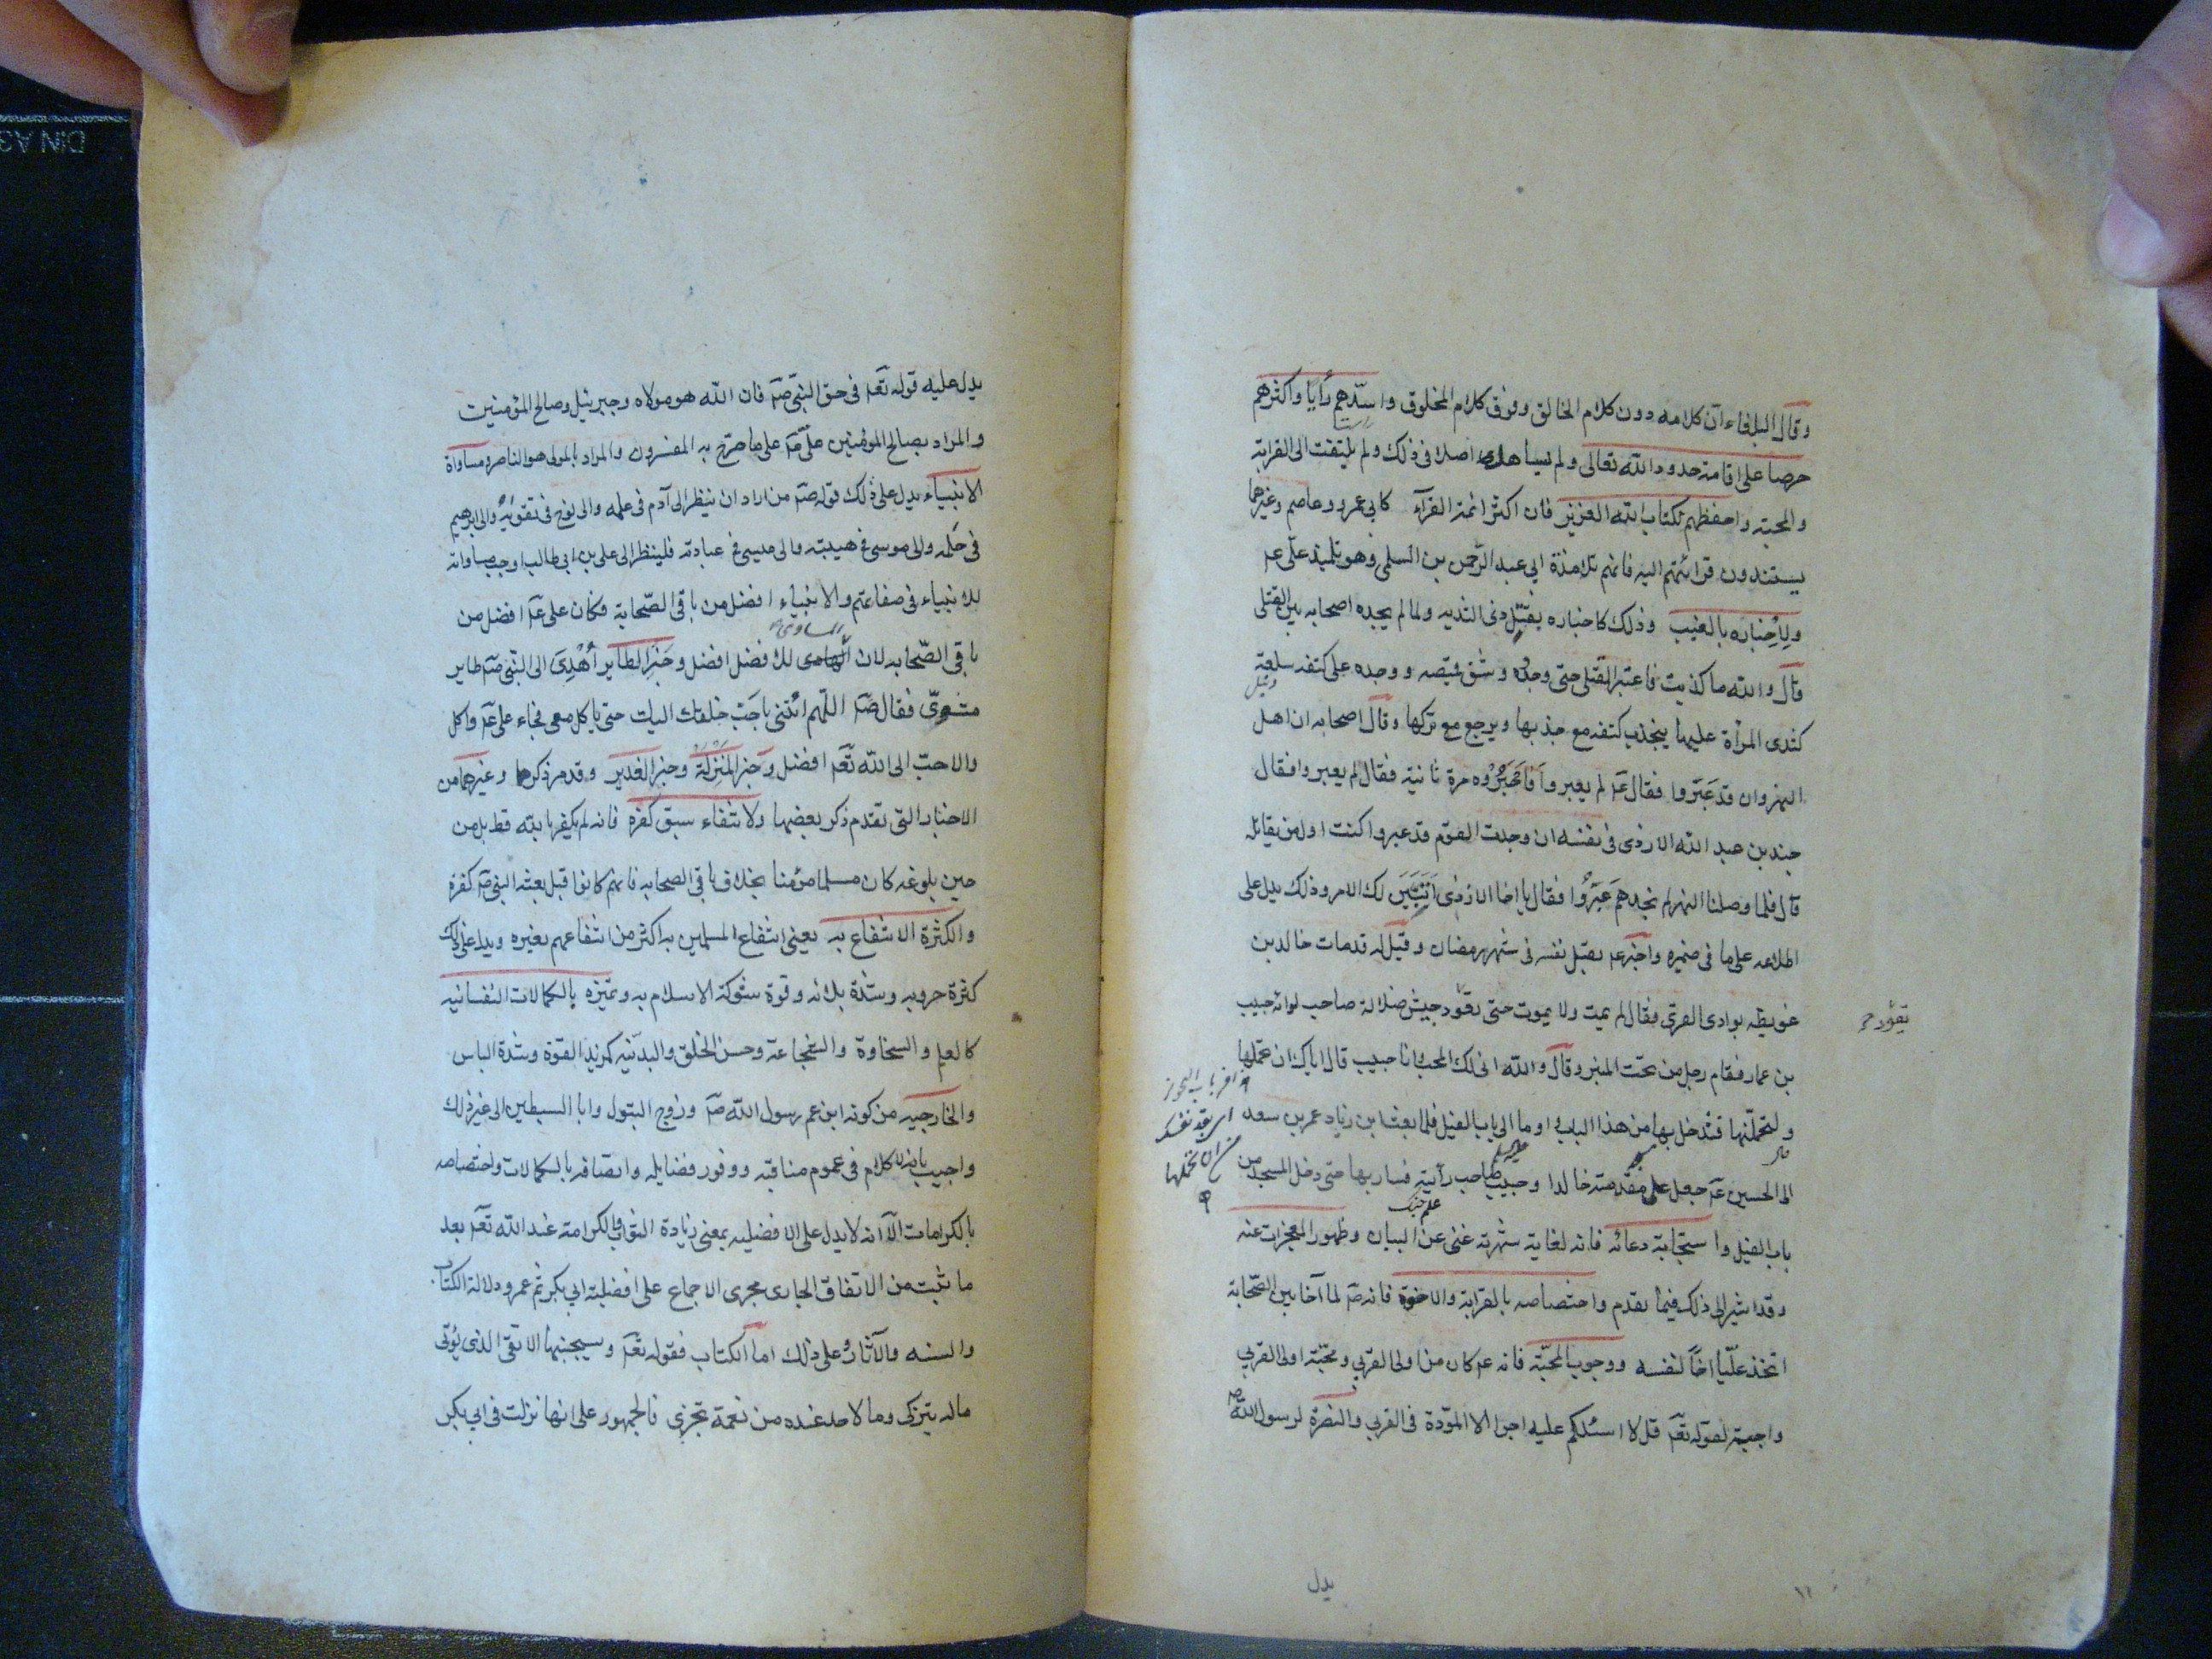 وقال البلغاء ان كلامه دون كلام الخالق وفوق كلام المخلوق واسدّهم رأيا واكثرهم
حرصا على اقامة حدود الله تعالى ولم يساهل اصلا فى ذلك ولم يلتفت الى القرابة
والمحبة واحفظهم لكتاب الله العزيز فان اكثر ائمة القرآء كابى عمرو وعاصم وغيرهما
يستندون قرائتهم اليه فانهم تلامذة ابى عبد الرّحمن بن السلمى وهو تلميذ علىّ عم
ولإخباره بالغيب وذلك كاخباره بقتل ذى الثديه ولما لم يجده اصحابه بين القتلى
قال والله ما كذبت فاعتبر القتلى حتى وجده وشق قميصه ووجده على كتفه سلعة
كثدى المرأة عليها ينجذب كتفه مع جذبها ويرجع مع تركها وقال اصحابه ان اهل
النهروان قد عَبَروا فقال عم لم يعبروا فاخبروه مرة ثانية فقال لم يعبروا فقال
جندب بن عبد الله الازدى فى نفسه ان وجدت القوم قد عبروا كنت اول من يقاتله
قال فلما وصلنا النهر لم نجدهم عَبَرُوا فقال يا اخا الازدى اَتَبَيَّنَ لك الامر وذلك يدل على
اطلاعه على ما فى ضميره واخبر عم بقتل نفسه فى شهر رمضان وقيل له قد مات خالد بن
عويطه بوادى القرى فقال لم يمت ولا يموت حتى يقود جيش ضلالة صاحب لوائه حبيب
يقود
بن عمار فقام رجل من تحت المنبر وقال والله انى لك المحب وانا حبيب قال اياك ان تحملها
ولتحملنّها فتدخل بها من هذا الباب واوما الى باب الفيل فلما بعث ابن زياد عمر بن سعد
الى الحسين عم جعل على مقدمته خالدا وحبيب صاحب رأيته فسار بها حتى دخل المسجد من
باب الفيل واستجابة دعائه فانه لغاية شهرته غنى عن البيان وظهور المعجزات عنه
وقد اشير الى ذلك فيما تقدم واختصاصه بالقرابة والاخوة فانه صم لما آخا بين الصّحابة
اتخذ عليّا اخاً لنفسه ووجوب المحبّة فانه عم كان من اولى القربى ومحبّة اولى القربى
واجبة لقوله تعم قل لا اسئلكم عليه اجرا الا المودّة فى القربى والنصرة لرسول الله صم
يدل
يدل عليه قوله تعم فى حق النبىّ صم فان الله هو مولاه وجبرئيل وصالح المؤمنين
والمراد بصالح المؤمنين علىّ عم على ما صرّح به المفسرون والمراد بالمولى هو الناصر ومساواة
الانبياء يدل على ذلك قوله صم من اراد ان ينظر الى آدم فى علمه والى نوح فى تقويه والى ابرهيم
فى حلمه والى موسى فى هيبته والى عيسى فى عبادته فلينظر الى على بن ابى طالب اوجب مساواته
للانبياء فى صفاتهم والانبياء افضل من باقى الصّحابة فكان على عم افضل من
المساوى
باقى الصّحابه لان للافضل افضل وخبر الطاير أهْدِىَ الى النّبى صم طاير
مشوىّ فقال صم اللّهم ائتنى باحَبّ خلقك اليك حتى ياكل معى فجاء على عم واكل
والاحبّ الى الله تعم افضل وخبر المَنْزِلَة وخبر الغدير وقد مر ذكرهما وغيرهما من
الاخبار التى تقدم ذكر بعضها ولانتفاء سبق كفره فانه لم يكفر بالله قط بل من
حين بلوغه كان مسلما مؤمنا بخلاف باقى الصحابه فانهم كانوا قبل بعثة النبى صم كفرة
والكثرة الانتفاع به يعنى انتفاع المسلمين به اكثر من انتفاعهم بغيره ويدل على ذلك
كثرة حروبه وشدة بلائه وقوة شوكة الاسلام به وتميّزه بالكمالات النفسانيه
كالعلم والسخاوة والشجاعة وحسن الخلق والبدنيّه كمزيد القوّة وشدة الباس
والخارجيه من كونه ابن عم رسول الله صم وزوج البتول وابا السبطين الى غير ذلك
واجيب بانه لا كلام فى عموم مناقبه ووفور فضايله واتصافه بالكمالات واختصاصه
بالكرامات الّا انه لا يدل على الافضليه بمعنى زيادة الثواب والكرامة عند الله تعم بعد
ما ثبت من الاتفاق الجارى مجرى الاجماع على افضلية ابى بكر ثم عمر ودلالة الكتاب
والسنه والآثار على ذلك اما الكتاب فقوله تعم وسيجنبها الاتقى الذى يؤتى
ماله يتزكى وما لاحد عنده من نعمة تجزى فالجمهور على انها نزلت فى ابى بكر